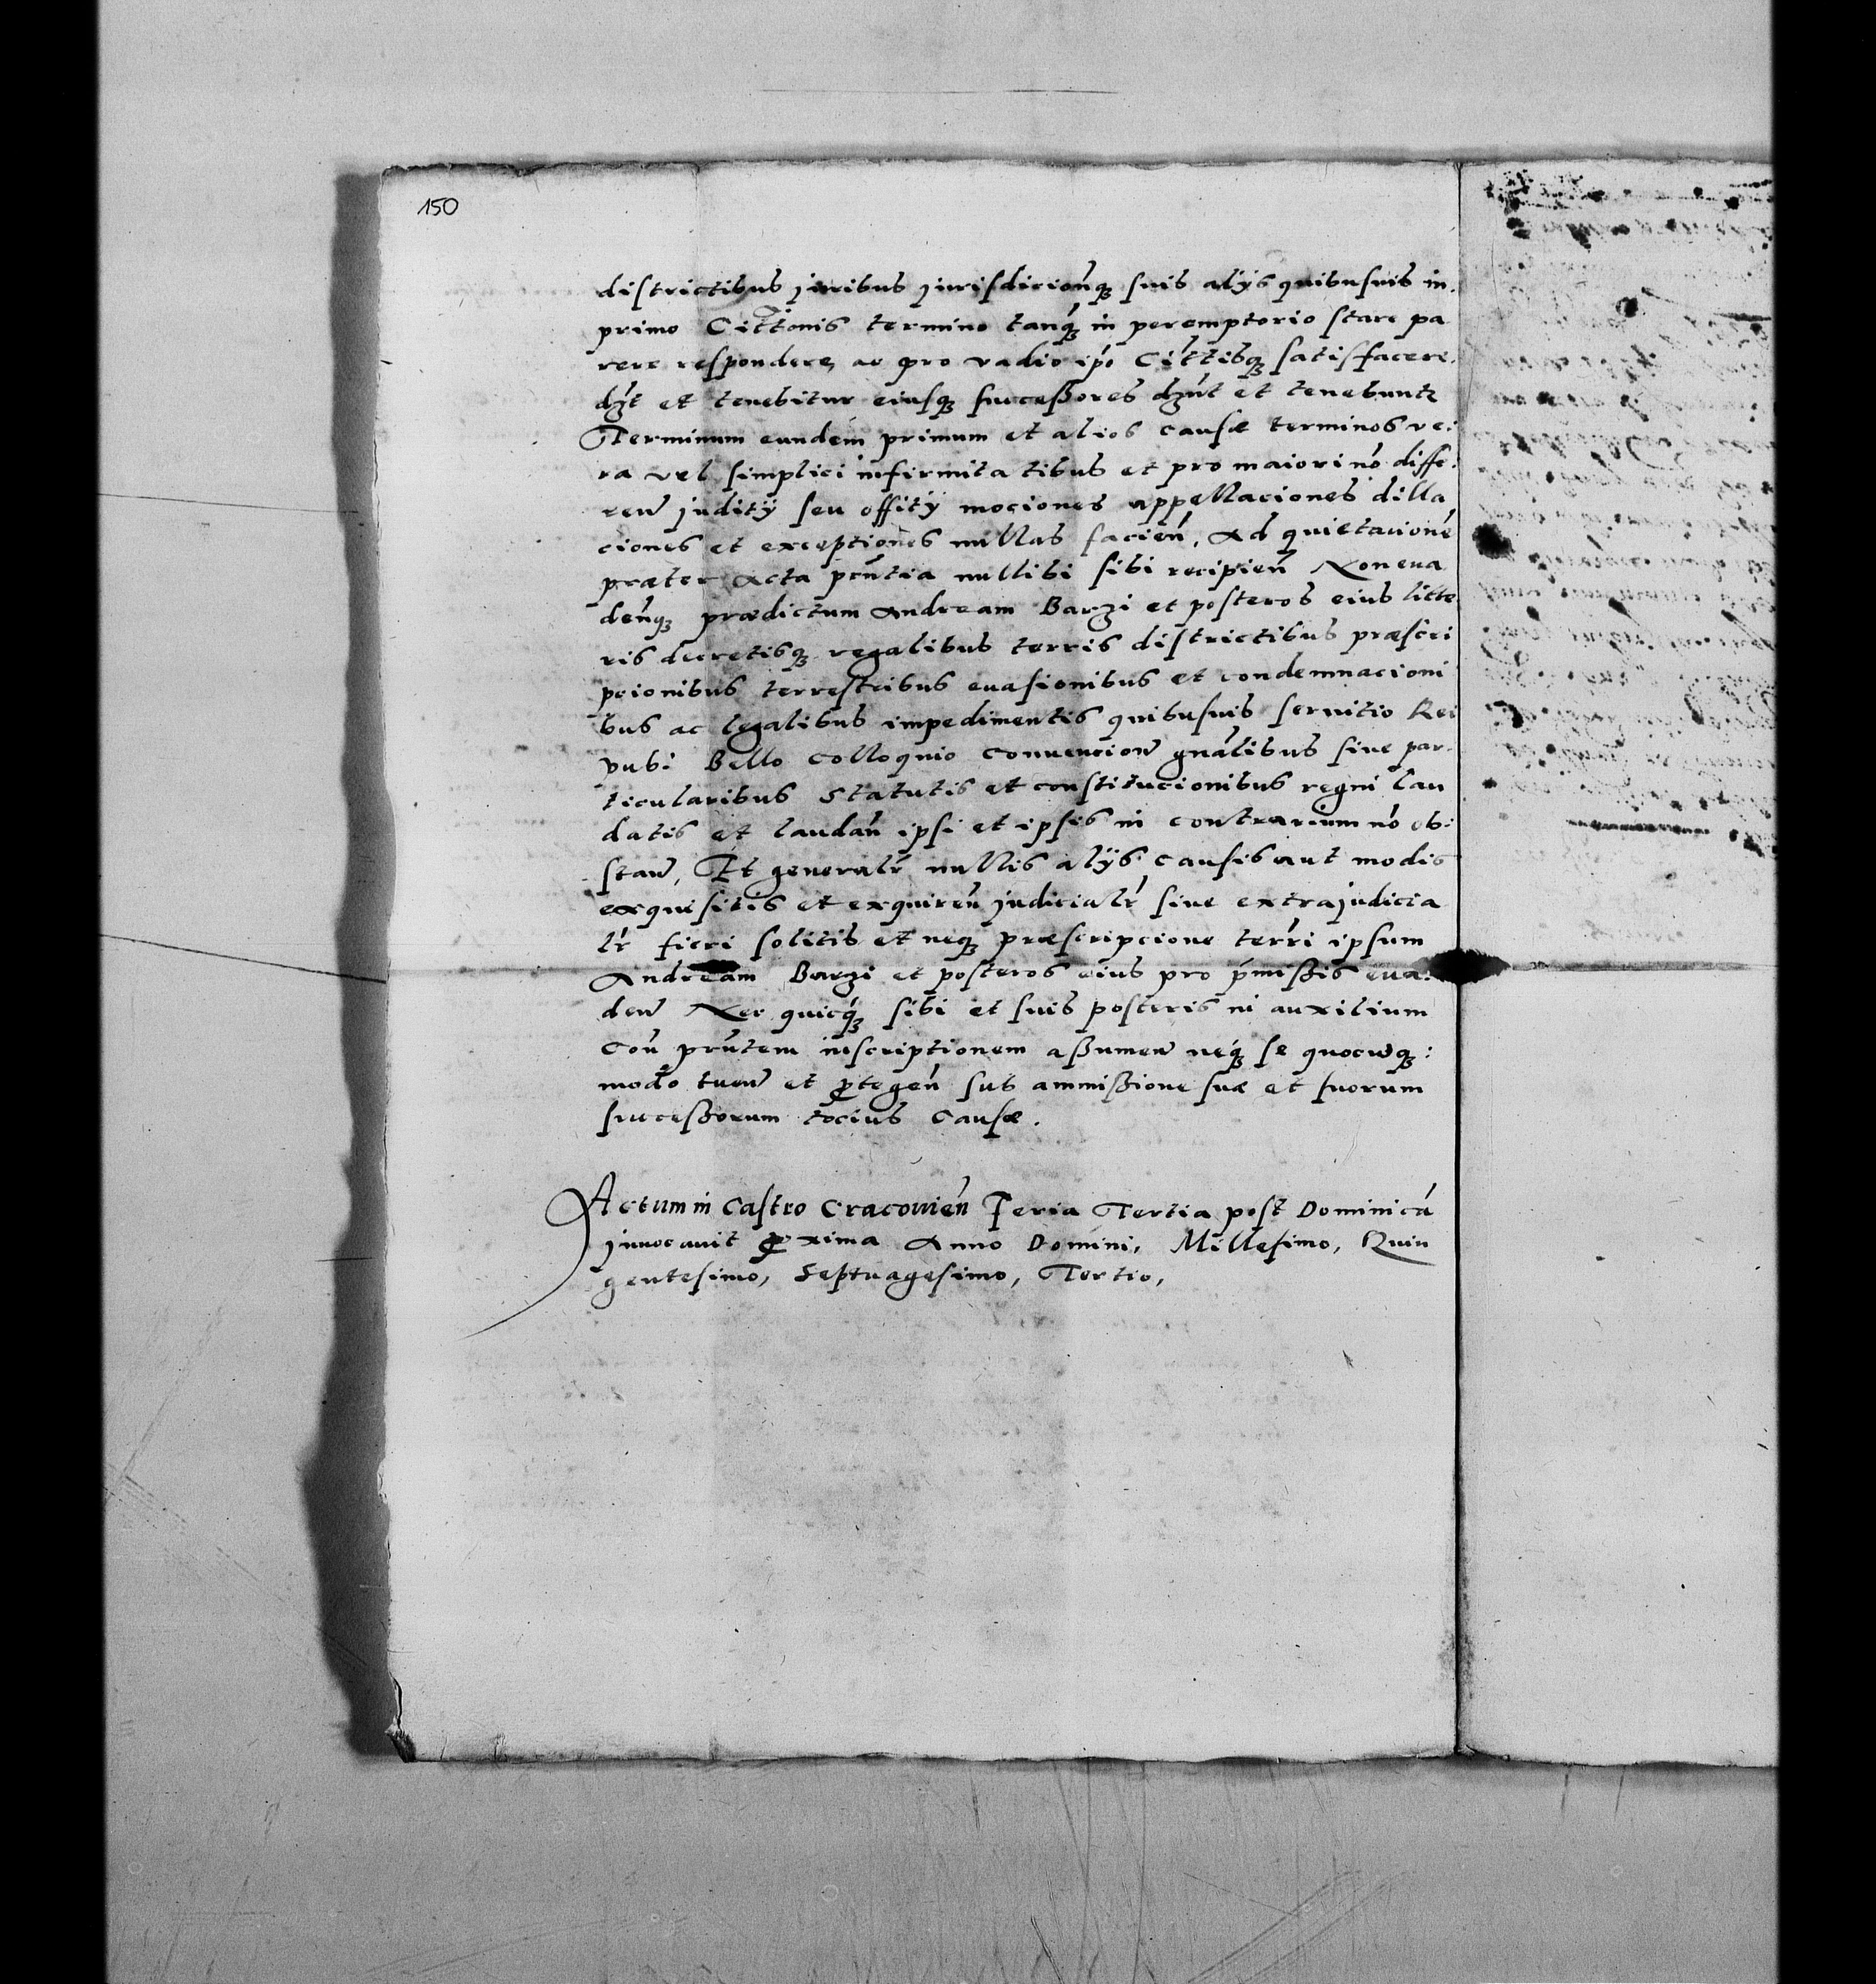 150
districtibus juribus jurisdicionq́ꝫ suis alÿs quibusuis in.
primo Citt̃onis termino tanq́ꝫ in peremptorio stare pa
rere respondere, ac pro vadio ip̃o Citt̃isqꝫ satisfacere.
dꝫt et tenebitur eiusqꝫ successores dꝫnt et tenebuntꝛ
Terminum eundem primum et alios causæ terminos ve:
ra vel simplici infirmitatibus et pro maiori nõ diffe:
ren̄ juditÿ seu offitÿ mociones appellaciones dilla
ciones et exceptiones nullas facień, Ad quietacionẽ
præter Acta pñtia nullibi sibi recipień Non eua
deńqꝫ prædictum Andream Barzi et posteros eius litte
ris decretisqꝫ regalibus terris districtibus præscri
pcionibus terrestribus euasionibus et condemnacioni
bus ac legalibus impedimentis quibusuis seruitio Rei
pub: Bello colloquio conuencion̄ gñalibus siue par:
ticularibus Statutis et constitucionibus regni lau
datis et laudań ipsi et ipsis in contrarium nõ ob:
stan̄, Et generalr̃ nullis alÿs causis aut modis
exquisitis et exquireń judicialr̃ siue extrajudicia
lr̃ fieri solitis et neqꝫ præscripcione terr̃i ipsum
Andream Barzi et posteros eius pro p̃missis eua:
den̄ Nec quicq́ꝫ sibi et suis posteris in auxilium
Coñ pr̃ntem inscriptionem assumen̄ neq́ꝫ se quocuqꝫ:
modo tuen̄ et ꝓtegeń sub ammissione suæ et suorum
successorum tocius Causæ.
Actum in Castro Cracouień Feria Tertia post Dominicã
jnuocauit ꝓxima Anno Domini, Millesimo, Quin
gentesimo, Septuagesimo, Tertio,